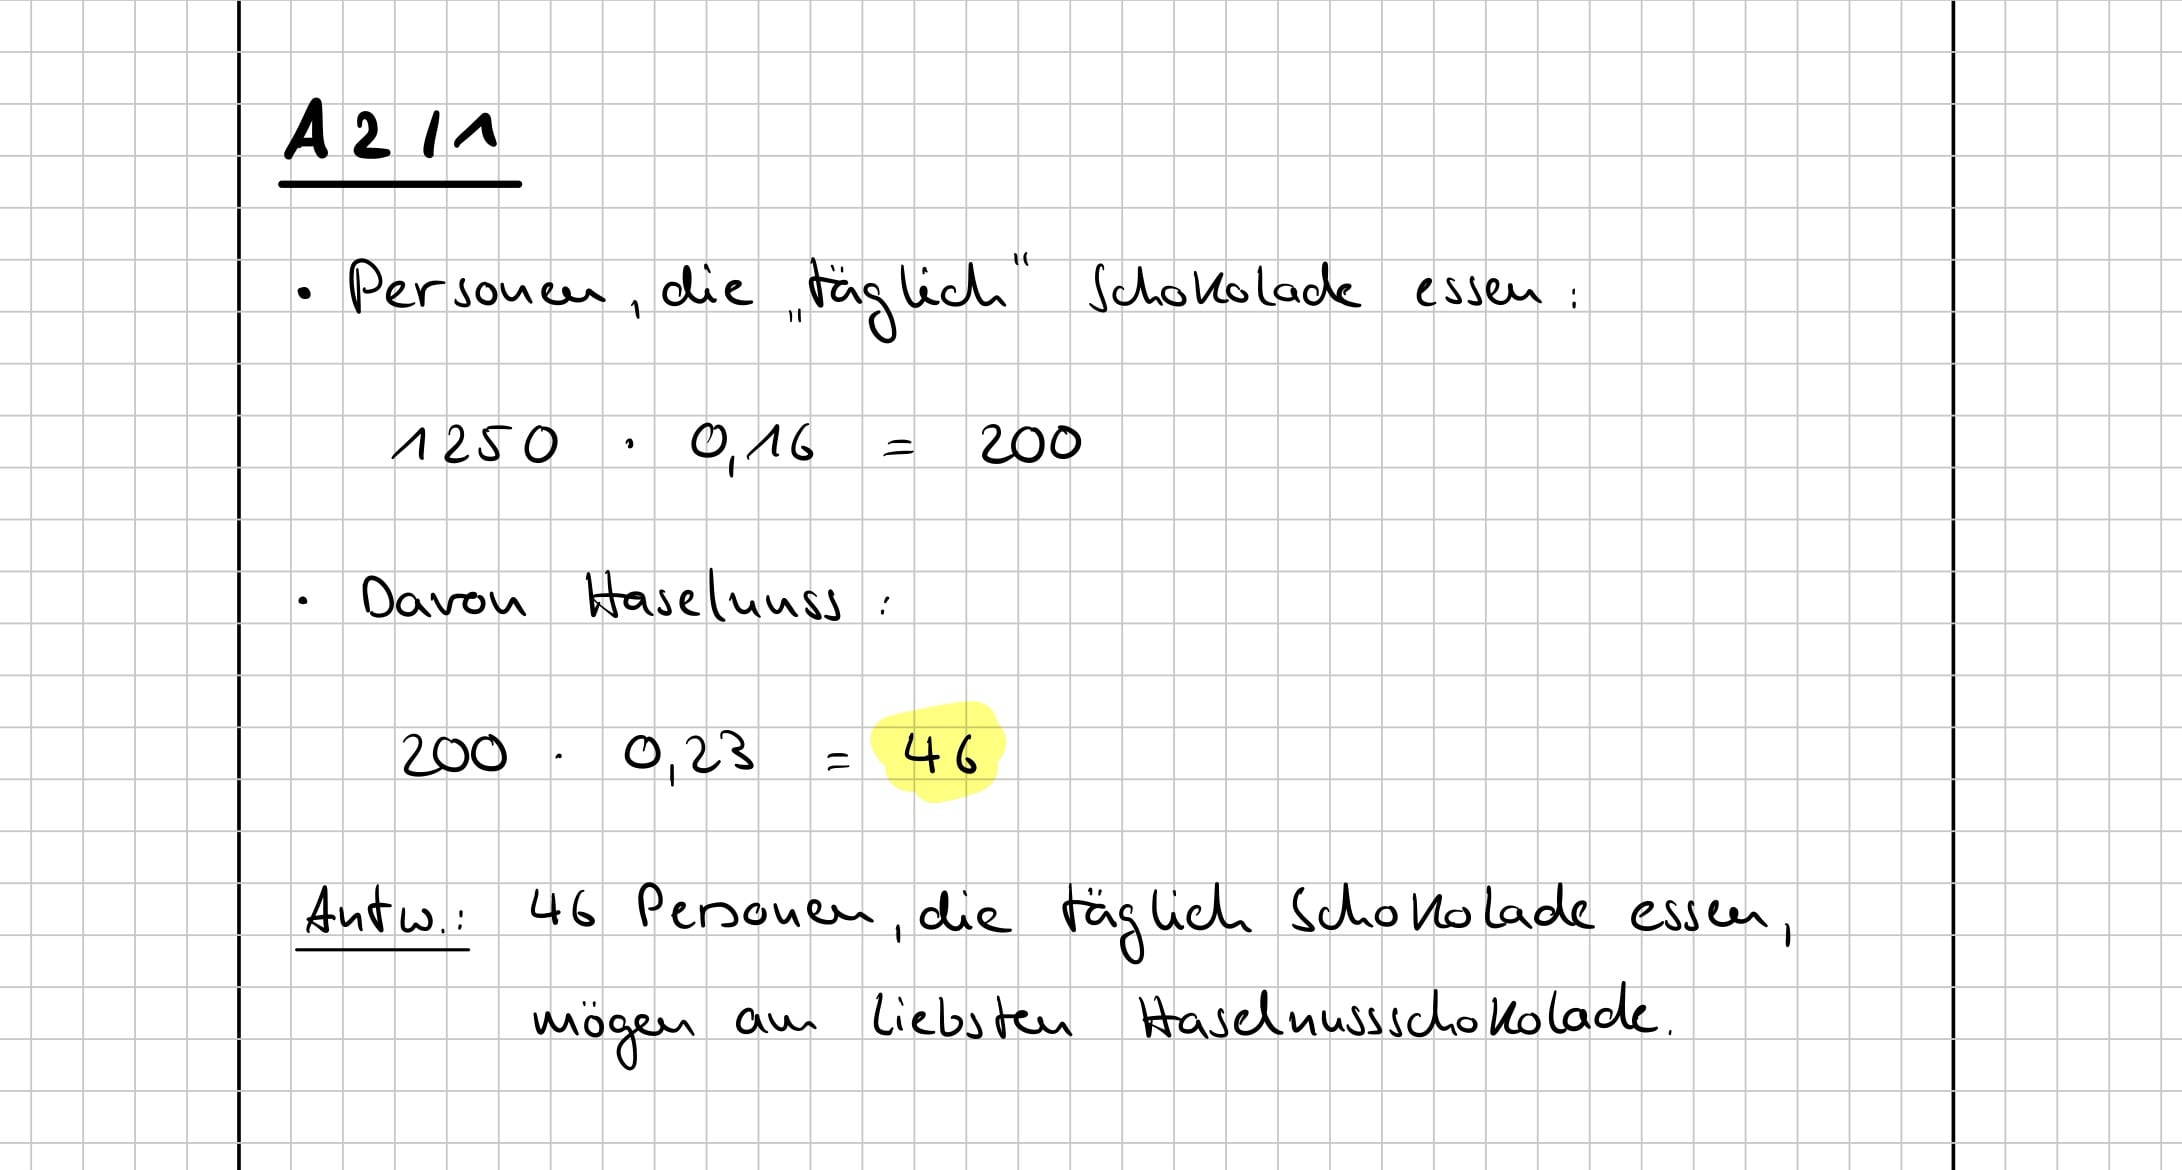 A2/1
• Personen, die „täglich“ Schokolade essen:
1250 · 0,16 = 200
• Davon Haselnuss:
200 · 0,23 = 46
Antw.: 46 Personen, die täglich Schokolade essen,
mögen am liebsten Haselnussschokolade.